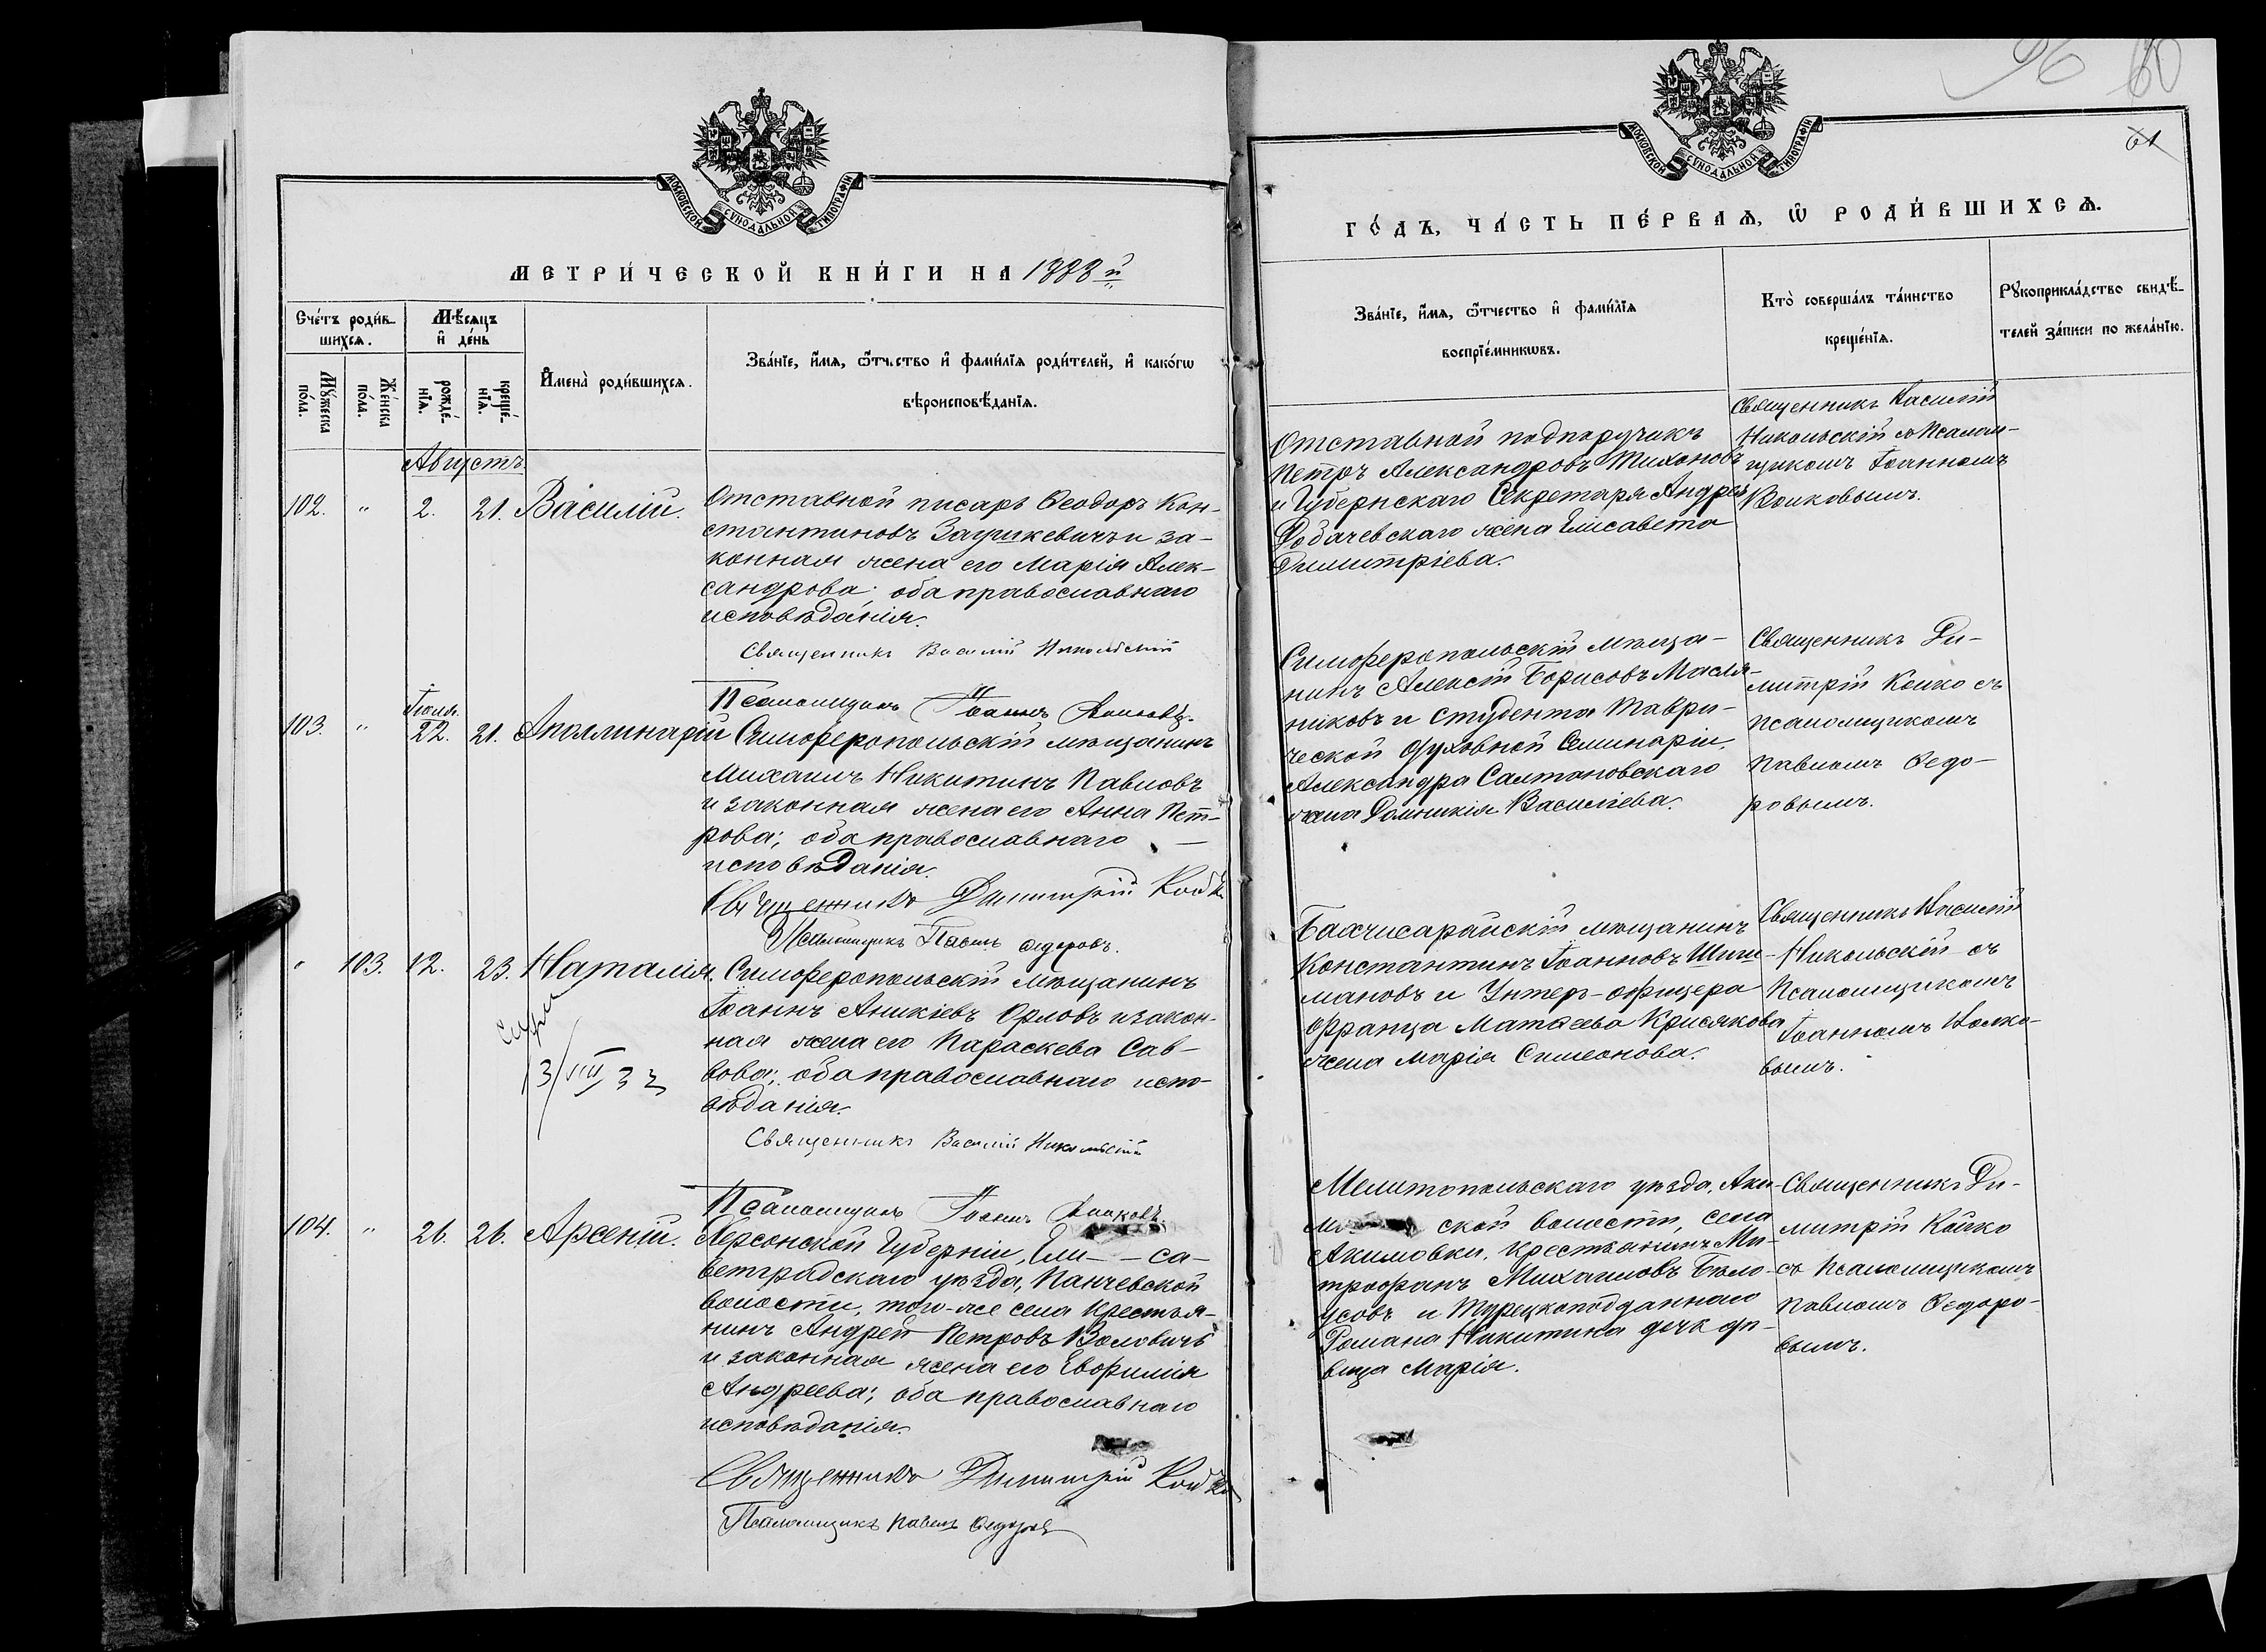 МОСКОВСКОЙ СѴНОДАЛЬНОЙ ТИПОГРАФІИ
МЕТРИ́ЧЕСКОЙ КНИ́ГИ НА 1888й
Сче́тъ роди́в-
шихсѧ.
Мѣ́сѧцъ
и҆ де́нь
Мꙋ́жеска
по́ла.
Же́нска
по́ла.
рожде́-
нїѧ.
креще́-
нїѧ.
И҆мена̀ роди́вшихсѧ.
Зва́нїе, и҆́мѧ, ѻ҆́тчество и҆ фами́лїѧ роди́телей, и҆ како́гѡ
вѣроисповѣ́данїѧ.
Августъ.
102. " 2. 21. Василій.
Отставной писарь Ѳеодоръ Кон-
стантиновъ Заушкевичъ и за-
конная жена его Марія Алек-
сандрова; оба православнаго
исповѣданія.
Священникъ Василій Никольскій
Псаломщикъ Іоаннъ Волковъ.
103. " Іюля. 22. 21. Аполлинарій
Симферопольскій мѣщанинъ
Михаилъ Никитинъ Павловъ
и законная жена его Анна Пет-
рова; оба православнаго
исповѣданія.
Священникъ Димитрій Койко
Псаломщикъ Павелъ Ѳедоровъ.
" 103. 12. 23. Наталія.
13/VIII 32
Симферопольскій мѣщанинъ
Іоаннъ Аникіевъ Орловъ и закон-
ная жена его Параскева Сав-
вова; оба православнаго испо-
вѣданія.
Священникъ Василій Никольскій
Псаломщикъ Іоаннъ Волковъ.
104. " 26. 26. Арсеній.
Херсонской Губерніи, Ели- - са-
ветградскаго уѣзда, Панчевской
волости, того-же села крестья-
нинъ Андрей Петровъ Воловичъ
и законная жена его Евфимія
Андреева; оба православнаго
исповѣданія.
Священникъ Димитрій Койко
Псаломщикъ Павелъ Ѳедоровъ
96 60
61
МОСКОВСКОЙ СѴНОДАЛЬНОЙ ТИПОГРАФІИ
ГО́ДЪ, ЧА́СТЬ ПЕ́РВАѦ, Ѡ҆ РОДИ́ВШИХСѦ.
Зва́нїе, и҆́мѧ, ѻ҆́тчество и҆ фами́лїѧ
воспрїе́мникѡвъ.
Кто̀ соверша́лъ та́инство
креще́нїѧ.
Рꙋкоприкла́дство свидѣ́-
телей за́писи по жела́нїю.
Отставной подпоручикъ
Петръ Александровъ Тихоновъ
и Губернскаго Секретаря Андрея
Добачевскаго жена Елисавета
Димитріева.
Священникъ Василій
Никольскій съ Псалом-
щикомъ Іоанномъ
Волковымъ.
Симферопольскій мѣща-
нинъ Алексій Борисовъ Масля-
никовъ и студента Таври-
ческой духовной Семинаріи
Александра Салтановскаго
жена Домникія Василіева.
Священникъ Ди-
митрій Койко съ
псаломщикомъ
Павломъ Ѳедо-
ровымъ.
Бахчисарайскій мѣщанинъ
Константинъ Іоанновъ Шиш-
мановъ и Унтер-офицера
Франца Матѳеева Крисякова
жена Марія Симеонова.
Священникъ Василій
Никольскій съ
Псаломщикомъ
Іоанномъ Волко-
вымъ.
Мелитопольскаго уѣзда, Аки-
мов ской волости, села
Акимовки, крестьянинъ Ми-
трофанъ Михаиловъ Бѣло-
усовъ и Турецкоподданнаго
Романа Никитина дочь дѣ-
вица Марія.
Священникъ Ди-
митрій Койко
съ Псаломщикомъ
Павломъ Ѳедоро-
вымъ.